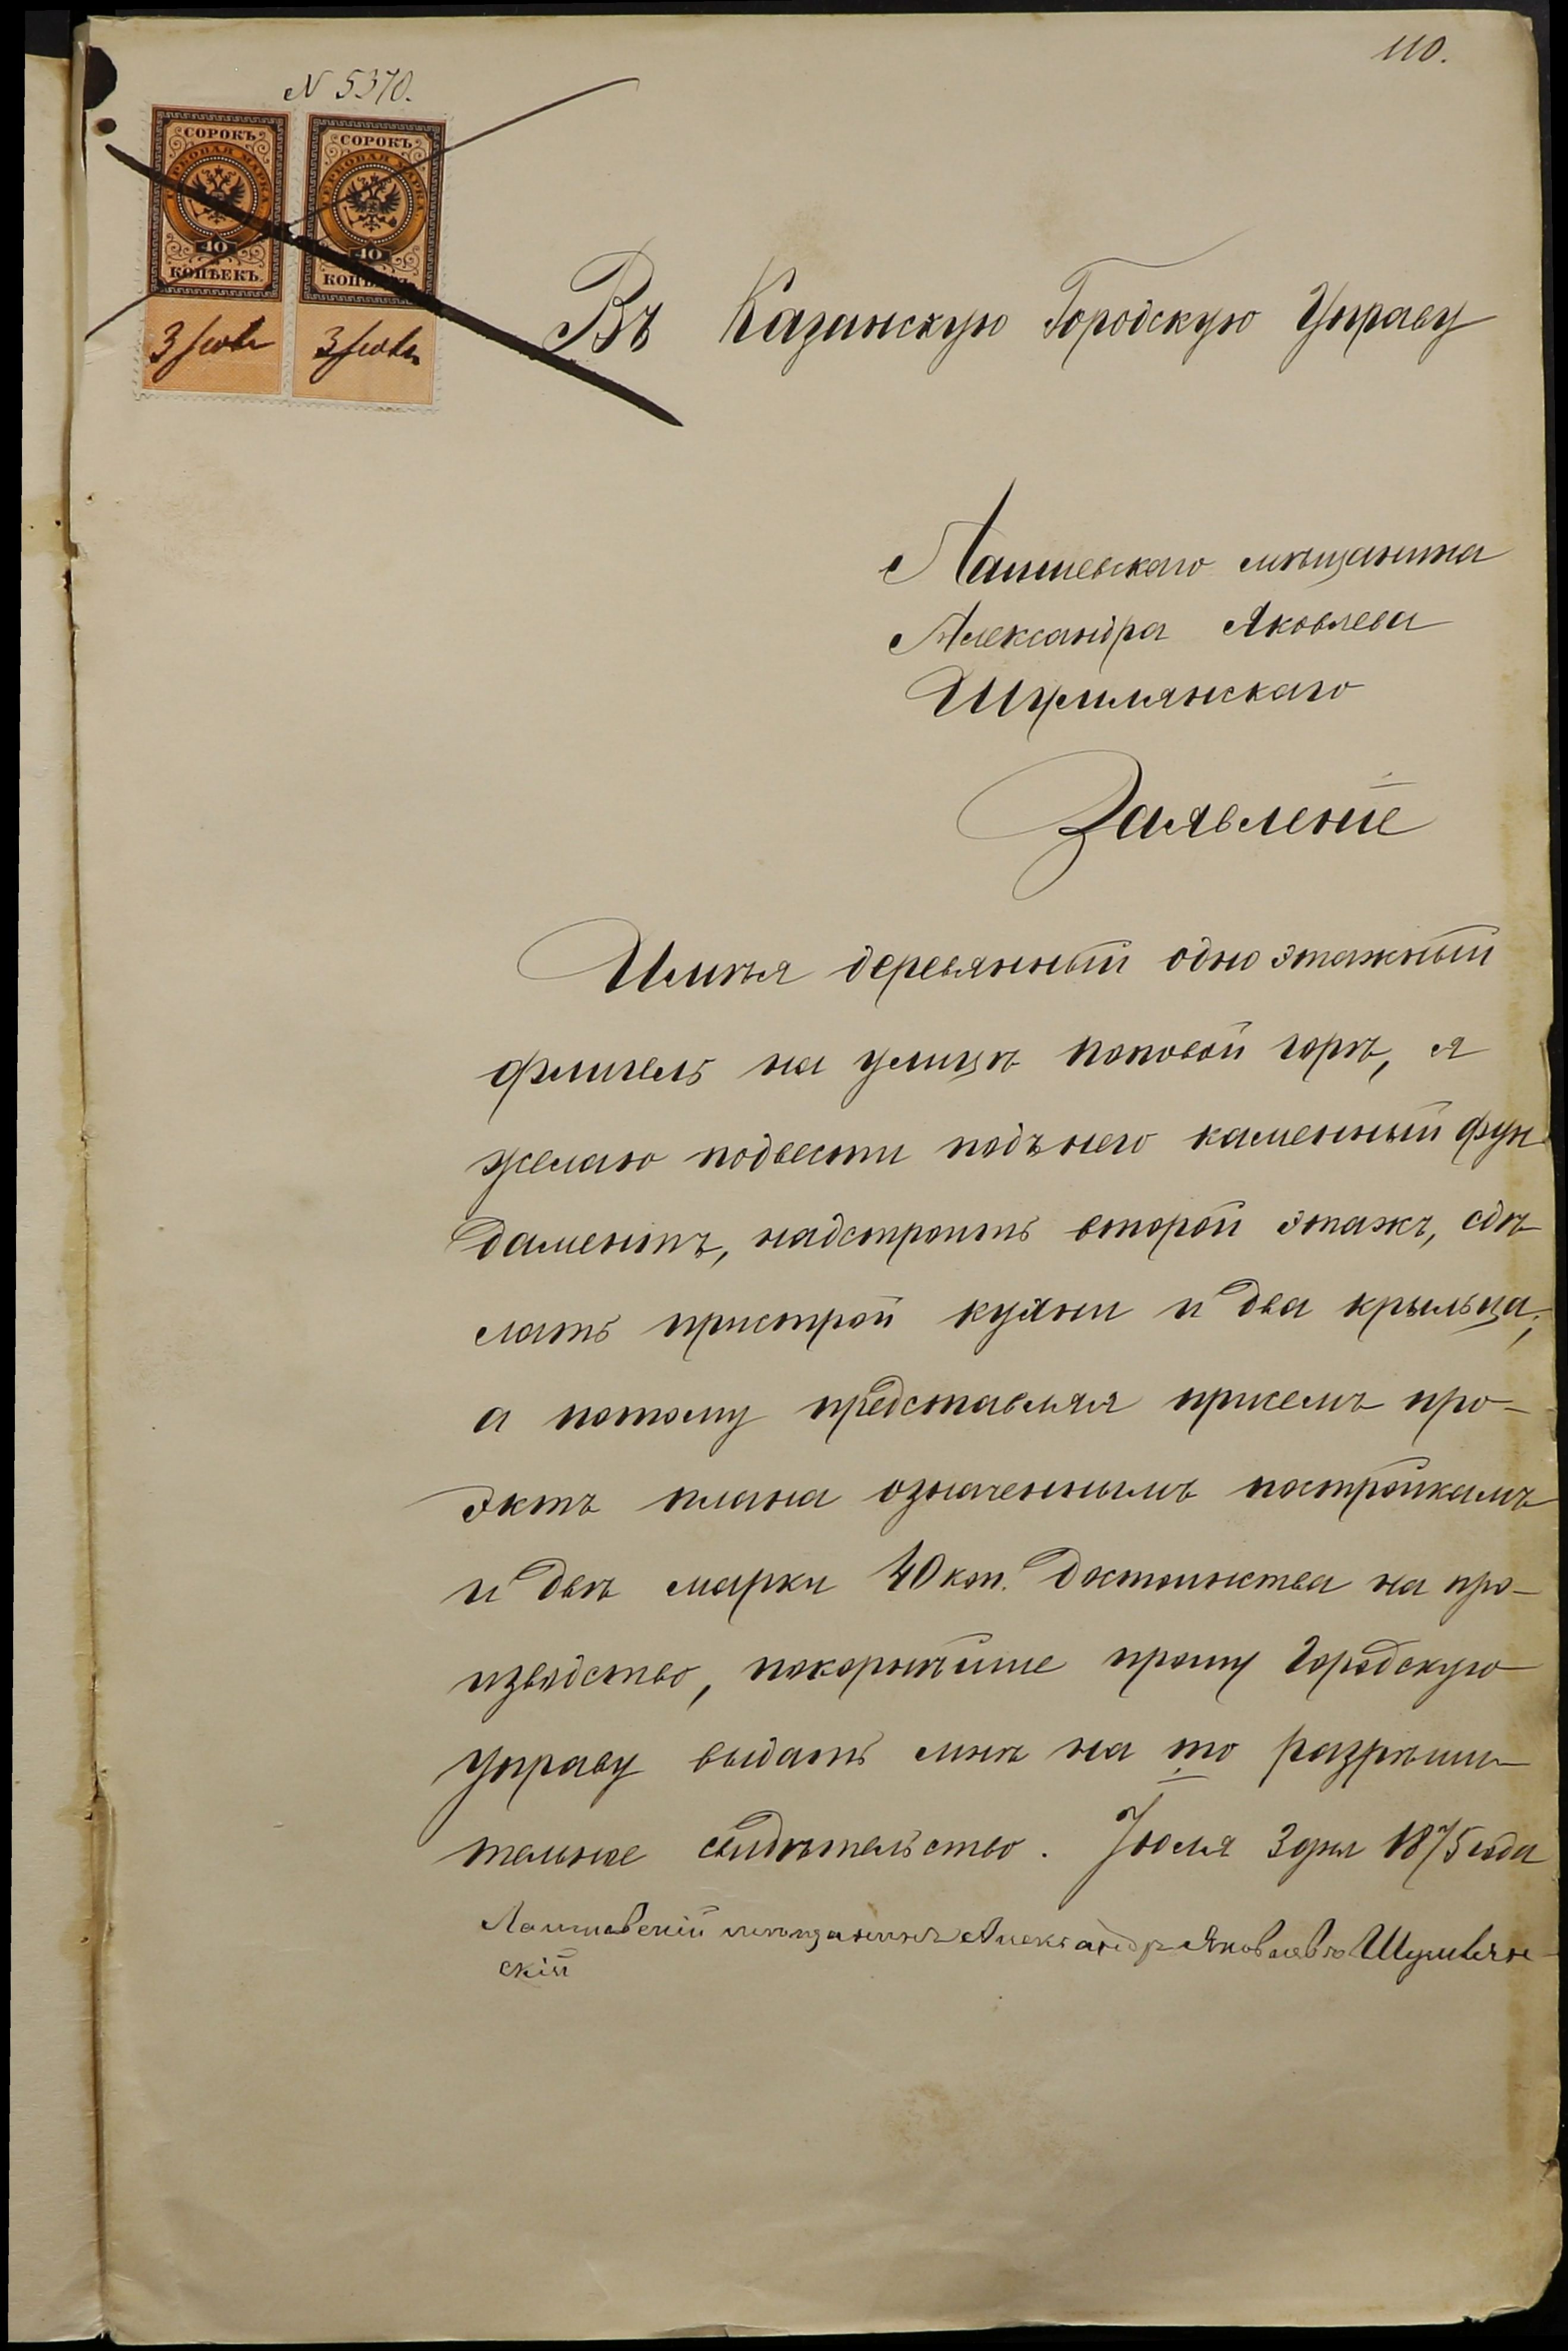 110.
N 5370.
СОРОКЪ СОРОКЪ
ГЕРБОВАЯ МАРКА ГЕРБОВАЯ МАРКА
40 40
КОПѢЕКЪ. КОПѢЕКЪ.
3 Іюля 3 Іюля
Въ Казанскую Городскую Управу
Лаишевскаго мѣщанина
Александра Яковлева
Шумлянскаго
Заявленіе
Имѣя деревянный одно этажный
флигель на улицѣ поповой горѣ, я
желаю подвести подъ него каменный фун
даментъ, надстроить второй этажъ, сдѣ
лать пристрой кухни и два крыльца;
а потому представляя присемъ про-
эктъ плана означеннымъ постройкамъ
и двѣ марки 40 коп. достоинства на про-
изводство, покорнѣйше прошу Городскую
управу выдать мнѣ на то разрѣши-
тельное свидѣтельство. Іюля 3 дня 1875 года
Лаишевскій мѣщанинъ Александръ Яковлевъ Шумлян-
скій